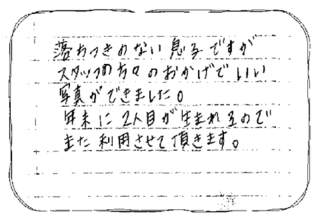 落ちつきのない息子ですが
スタッフの方々のおかげでいい
写真ができました。
年末に2人目が生まれるので
また利用させて頂きます。